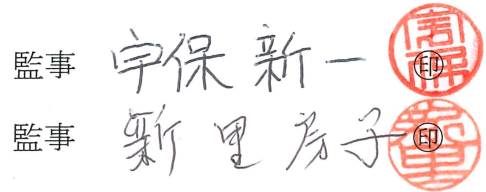 監事 宇保新一 ㊞
監事 新里房子 ㊞